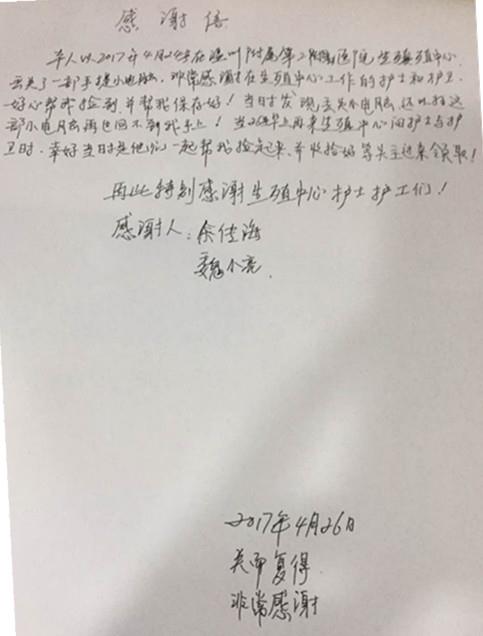 感谢信
本人以2017年4月24号在温州附属第二附属医院生殖中心
丢失了一部手提小电脑,非常感谢在生殖中心工作的护士和护工
好心帮我捡到,并帮我保存好!当时发现丢失小电脑,还以为这
部小电脑再也回不到我手上!当26早上再来生殖中心问护士与护
工时,幸好当时是他们一起帮我捡起来,并收拾好等失主过来领取!
再此特别感谢生殖中心护士护工们!
感谢人:余佳海
魏小亮
2017年4月26日
失而复得
非常感谢